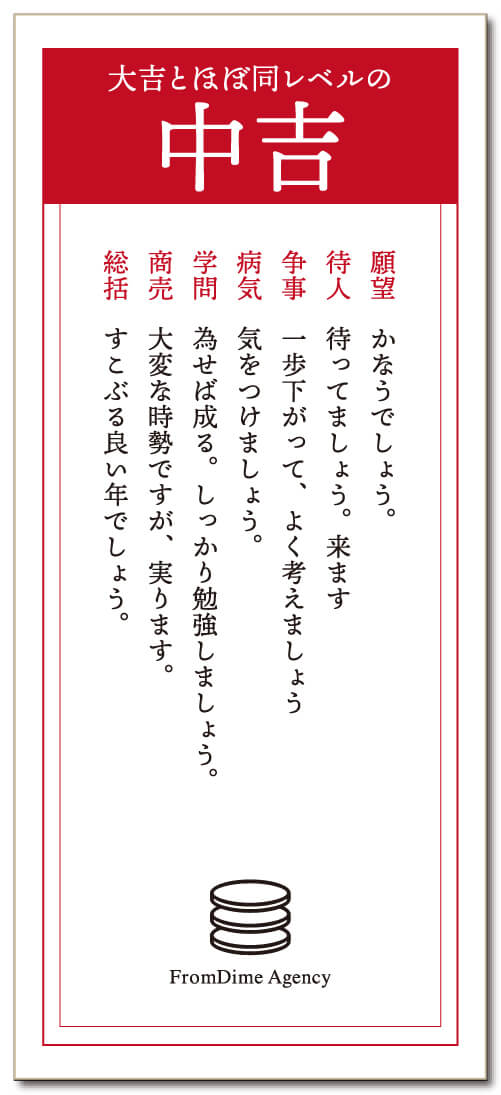 大吉とほぼ同レベルの
中吉
願望 かなうでしょう。
待人 待ってましょう。来ます
争事 一歩下がって、よく考えましょう
病気 気をつけましょう。
学問 為せば成る。しっかり勉強しましょう。
商売 大変な時勢ですが、実ります。
総括 すこぶる良い年でしょう。
FromDime Agency